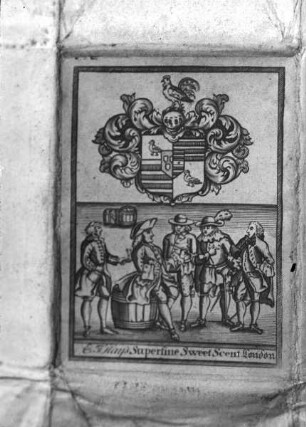 Superfine Sweet Scent London